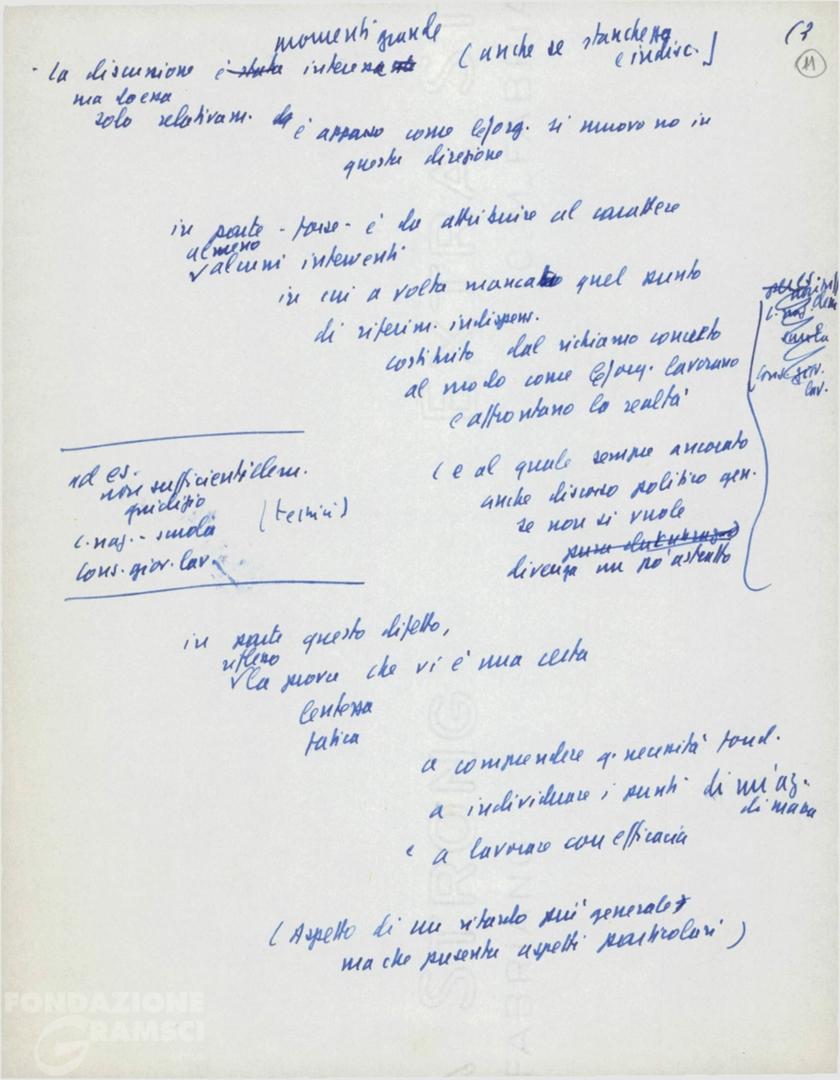 (3
11
momenti grande
- la discussione è ~~stata~~ interessante (anche se stanchezza
e indisc.)
ma da essa
solo relativam. è apparso come le/org. si muovono in
questa direzione
in parte - forse - è da attribuire al carattere
almeno
alcuni interventi
in cui a volta mancato quel punto
di riferim. indispens.
costituito dal richiamo concreto
al modo come le/org. lavorano
e affrontano la realtà
c. naz.
scuola
cons. giov.
lav.
(e al quale sempre ancorato
anche discorso politico gen.
se non si vuole
divenga un po' astratto
ad es.
non sufficienti elem.
giudizio
c. naz. - scuola (temini)
cons. giov. lav.
in parte questo difetto,
riflesso
la prova che vi è una certa
lentezza
fatica
a comprendere q. necessità fond.
a individuare i punti di un'az.
di massa
e a lavorare con efficacia
(Aspetto di un ritardo più generale
ma che presenta aspetti particolari)
FONDAZIONE
GRAMSCI